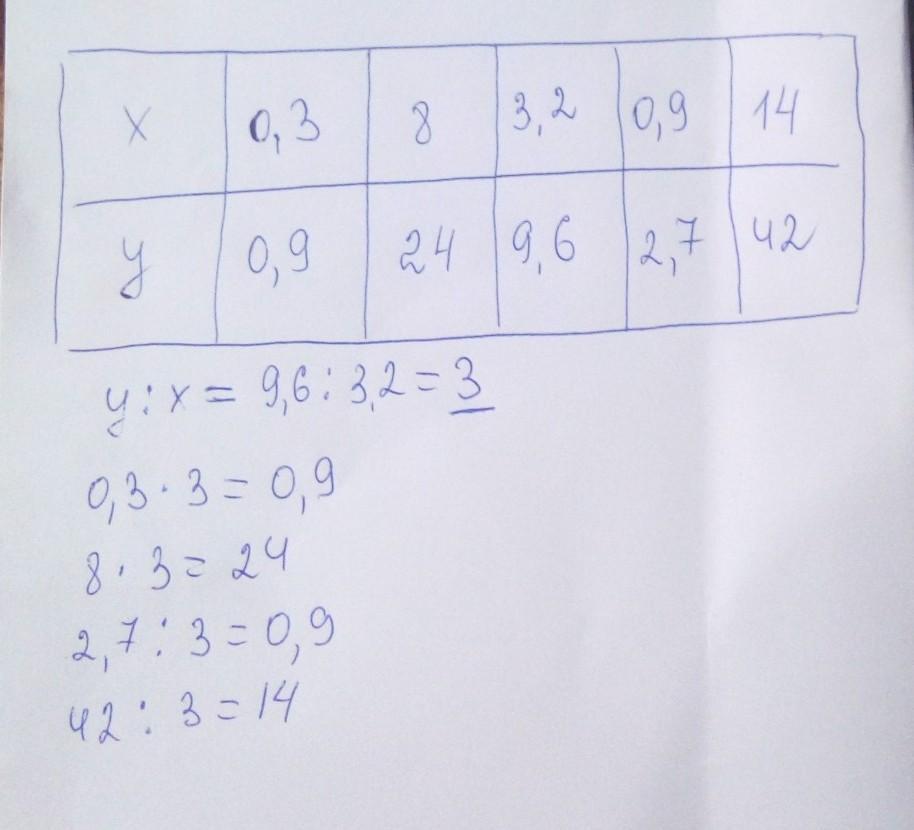 x 0,3 8 3,2 0,9 14
y 0,9 24 9,6 2,7 42
y : x = 9,6 : 3,2 = 3
0,3 · 3 = 0,9
8 · 3 = 24
2,7 : 3 = 0,9
42 : 3 = 14